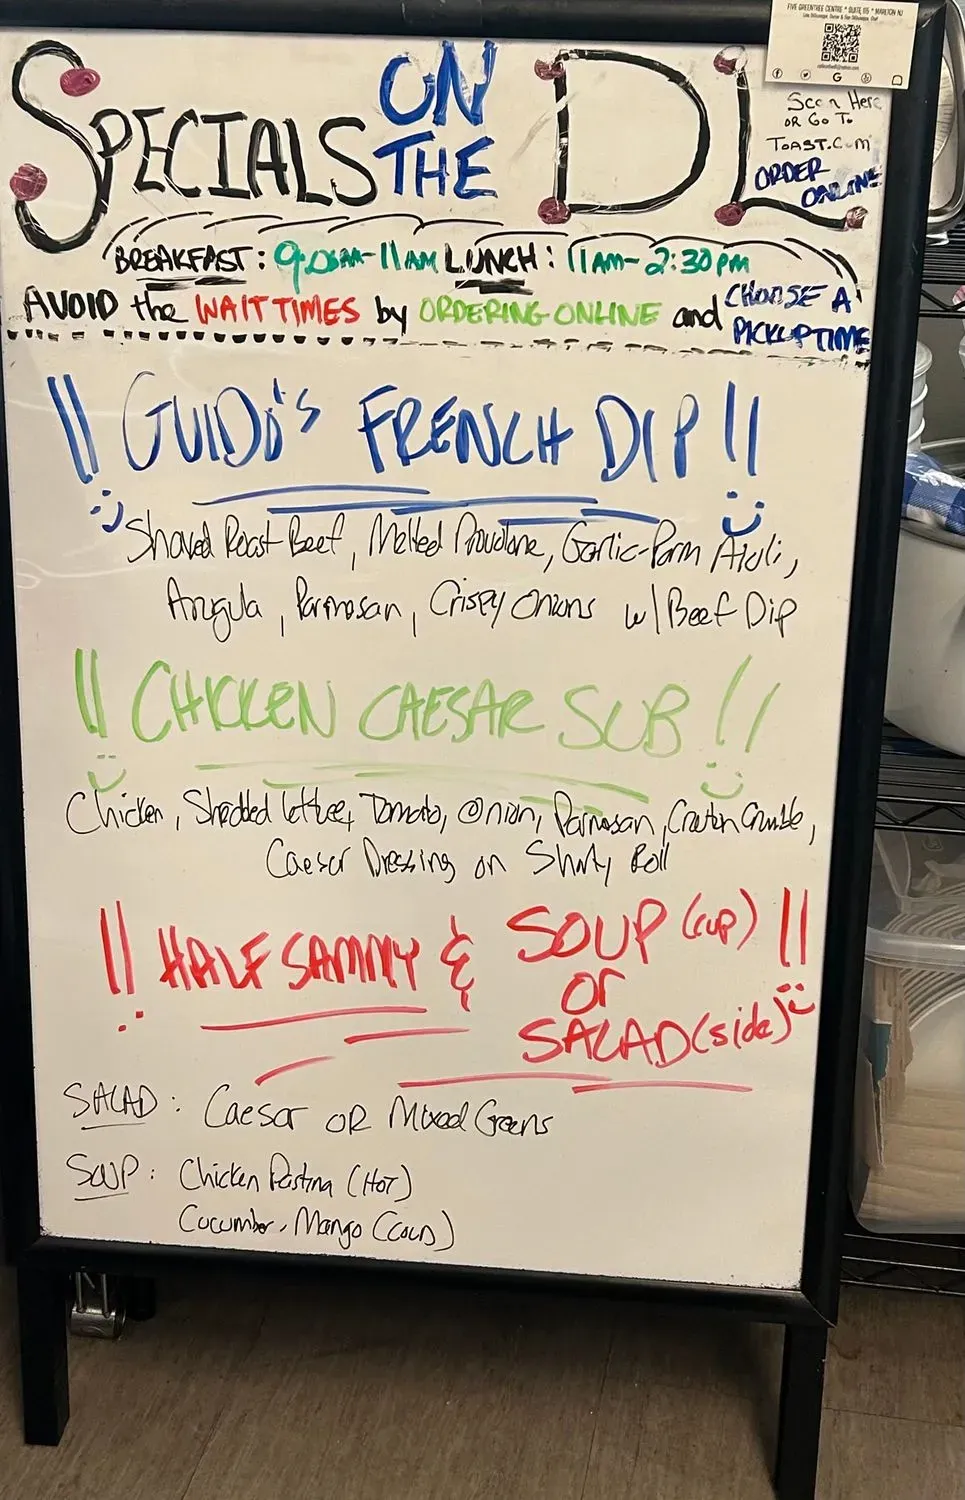 FIVE GREENTREE CENTRE * SUITE 115 * MARLTON NJ
SPECIALS ON THE DL
Scan Here
OR Go To
TOAST.COM
ORDER
ONLINE
BREAKFAST: 9:00AM-11AM LUNCH: 11AM-2:30PM
AVOID the WAIT TIMES by ORDERING ONLINE and CHOOSE A
PICKUP TIME
!! GUIDO's FRENCH DIP !!
Shaved Roast Beef, Melted Provolone, Garlic-Parm Aioli,
Arugula, Parmosan, Crispy Onions w/ Beef Dip
!! CHICKEN CAESAR SUB !!
Chicken, Shredded lettuce, Tomato, Onion, Parmosan, Crouton Crumble,
Caesar Dressing on Shorty Roll
!! HALF SAMMY & SOUP (cup) !!
OR
SALAD (side)
SALAD: Caesar OR Mixed Greens
SOUP: Chicken Pastina (HOT)
Cucumber, Mango (COLD)